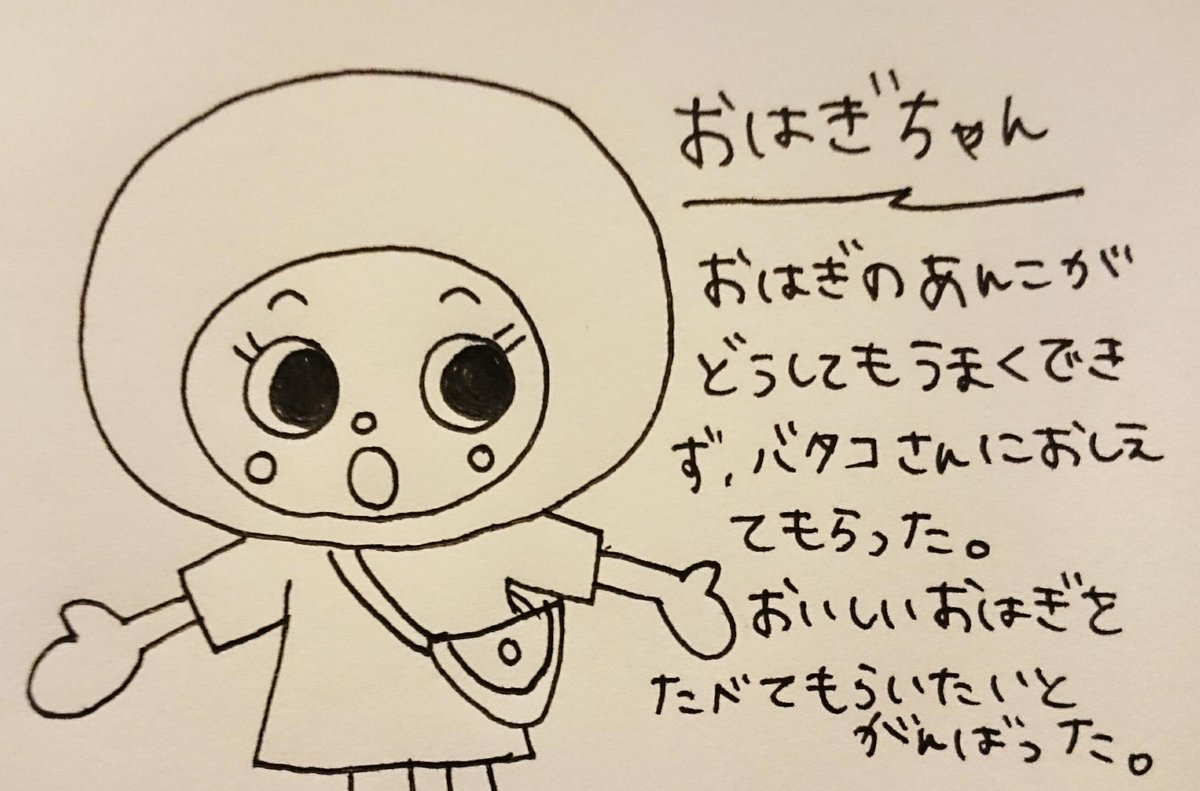 おはぎちゃん
おはぎのあんこが
どうしてもうまくでき
ず、バタコさんにおしえ
てもらった。
おいしいおはぎを
たべてもらいたいと
がんばった。